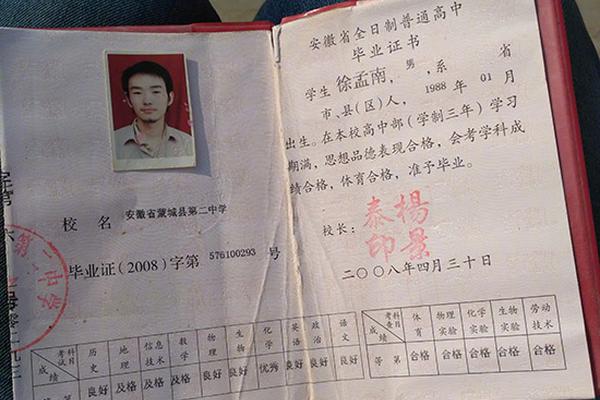 校 名 安徽省蒙城县第二中学
毕业证(2008)字第 576100293 号
第二中学
考试科目 历史 地理 信息技术 数学 物理 生物 化学 英语 政治 语文
成绩 良好 及格 及格 及格 良好 良好 优秀 良好 良好 良好
安徽省全日制普通高中
毕业证书
学生 徐孟南，男，系 省
市、县(区)人，1988 年 01 月
出生。在本校高中部(学制三年)学习
期满，思想品德表现合格，会考学科成
绩合格，体育合格，准予毕业。
校长： 杨景泰印
二〇〇八年四月三十日
考查科目 体育 物理实验 化学实验 生物实验 劳动技术
等第 合格 合格 合格 合格 合格